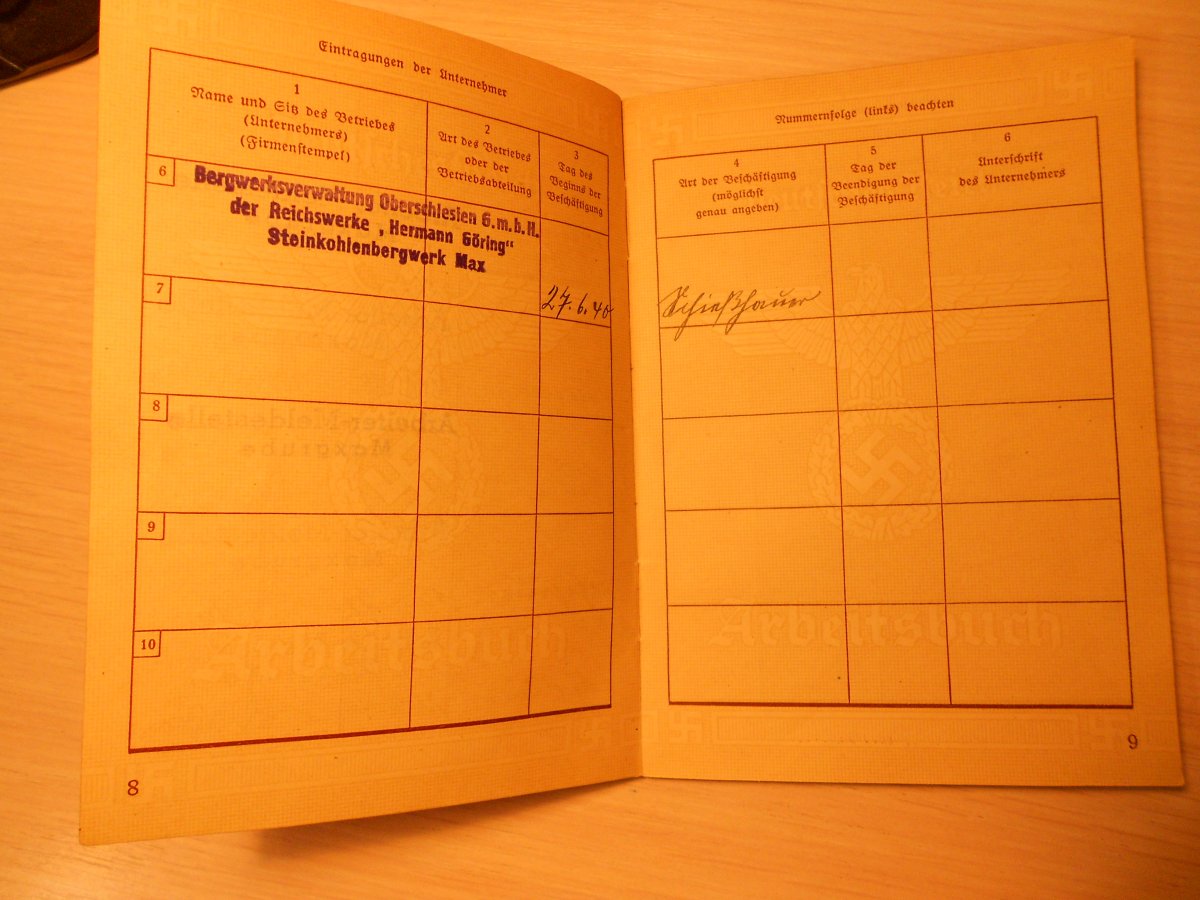 Eintragungen der Unternehmer
1
Name und Sitz des Betriebes
(Unternehmers)
(Firmenstempel)
2
Art des Betriebes
oder der
Betriebsabteilung
3
Tag des
Beginns der
Beschäftigung
6
Bergwerksverwaltung Oberschlesien G.m.b.H.
der Reichswerke „Hermann Göring“
Steinkohlenbergwerk Max
7
27.6.40
8
9
10
Arbeitsbuch
8
Nummernfolge (links) beachten
4
Art der Beschäftigung
(möglichst
genau angeben)
5
Tag der
Beendigung der
Beschäftigung
6
Unterschrift
des Unternehmers
Schießhauer
Arbeitsbuch
9